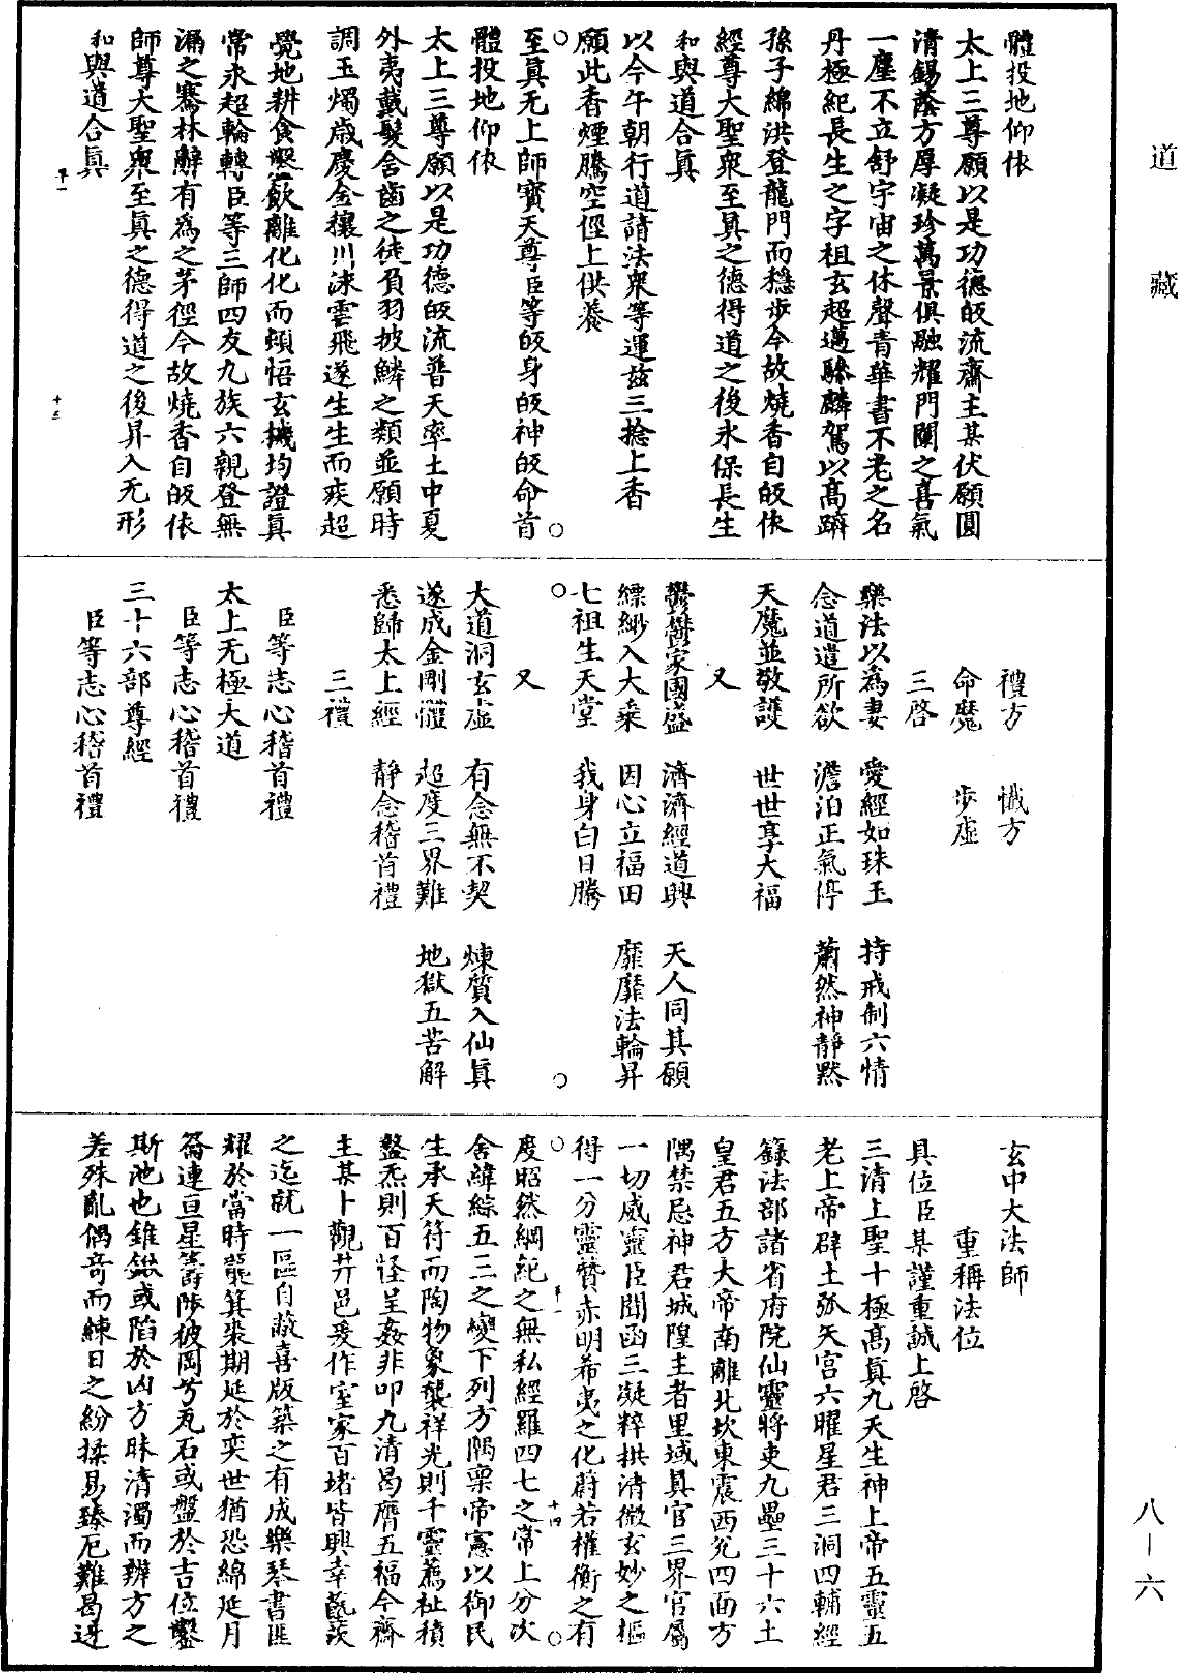 道藏
體投地仰依
太上三尊願以是功德皈流齋主某伏願圓
清錫蔭方厚凝珍萬景俱融耀門闌之喜氣
一塵不立舒宇宙之休聲青華書不老之名
丹極紀長生之字祖玄超邁驂麟駕以高躋
孫子綿洪登龍門而穩步今故燒香自皈依
經尊大聖衆至真之德得道之後永保長生
和與道合真
以今午朝行道請法衆等運茲三捻上香
願此香煙騰空徑上供養
至真无上師寳天尊臣等皈身皈神皈命首
體投地仰依
太上三尊願以是功德皈流普天率土中夏
外夷戴髮含齒之徒負羽披鱗之類並願時
調玉燭歲慶金穰川泳雲飛遂生生而疾超
覺地耕食鑿飲離化化而頓悟玄機均證真
常永超輪轉臣等三師四友九族六親登無
漏之騫林辭有為之茅徑今故燒香自皈依
師尊大聖衆至真之德得道之後昇入无形
和與道合真
十三
禮方 懺方
命魔 步虛
三啓
樂法以為妻 愛經如珠玉 持戒制六情
念道遣所欲 澹泊正氣停 蕭然神靜默
天魔並敬護 世世享大福
又
鬱鬱家國盛 濟濟經道興 天人同其願
縹緲入大乘 因心立福田 靡靡法輪昇
七祖生天堂 我身白日騰
又
大道洞玄虛 有念無不契 煉質入仙真
遂成金剛體 超度三界難 地獄五苦解
悉歸太上經 靜念稽首禮
三禮
臣等志心稽首禮
太上无極大道
臣等志心稽首禮
三十六部尊經
臣等志心稽首禮
玄中大法師
重稱法位
具位臣某謹重誠上啓
三清上聖十極高真九天生神上帝五靈五
老上帝辟土弧矢宮六曜星君三洞四輔經
籙法部諸省府院仙靈將吏九壘三十六土
皇君五方大帝南離北坎東震西兌四面方
隅禁忌神君城隍主者里域真官三界官屬
一切威靈臣聞函三凝粹拱清微玄妙之樞
得一分靈贊赤明希夷之化蔚若權衡之有
十四
度昭然綱紀之無私經羅四七之常上分次
舍緯綜五三之變下列方隅稟帝憲以御民
生承天符而陶物象襲祥光則千靈薦祉積
盤炁則百怪呈姦非叩九清曷膺五福今齋
主某卜觀井邑爰作室家百堵皆興幸甑茨
之迄就一區自蔽喜版築之有成樂琴書匪
耀於當時裘箕裘期延於奕世猶恐綿延月
籥連亘星籌陟彼岡兮瓦石或盤於吉位鑿
斯池也錐鍬或陷於凶方昧清濁而辨方之
差殊亂偶奇而練日之紛揉易臻厄難曷迓
八－六